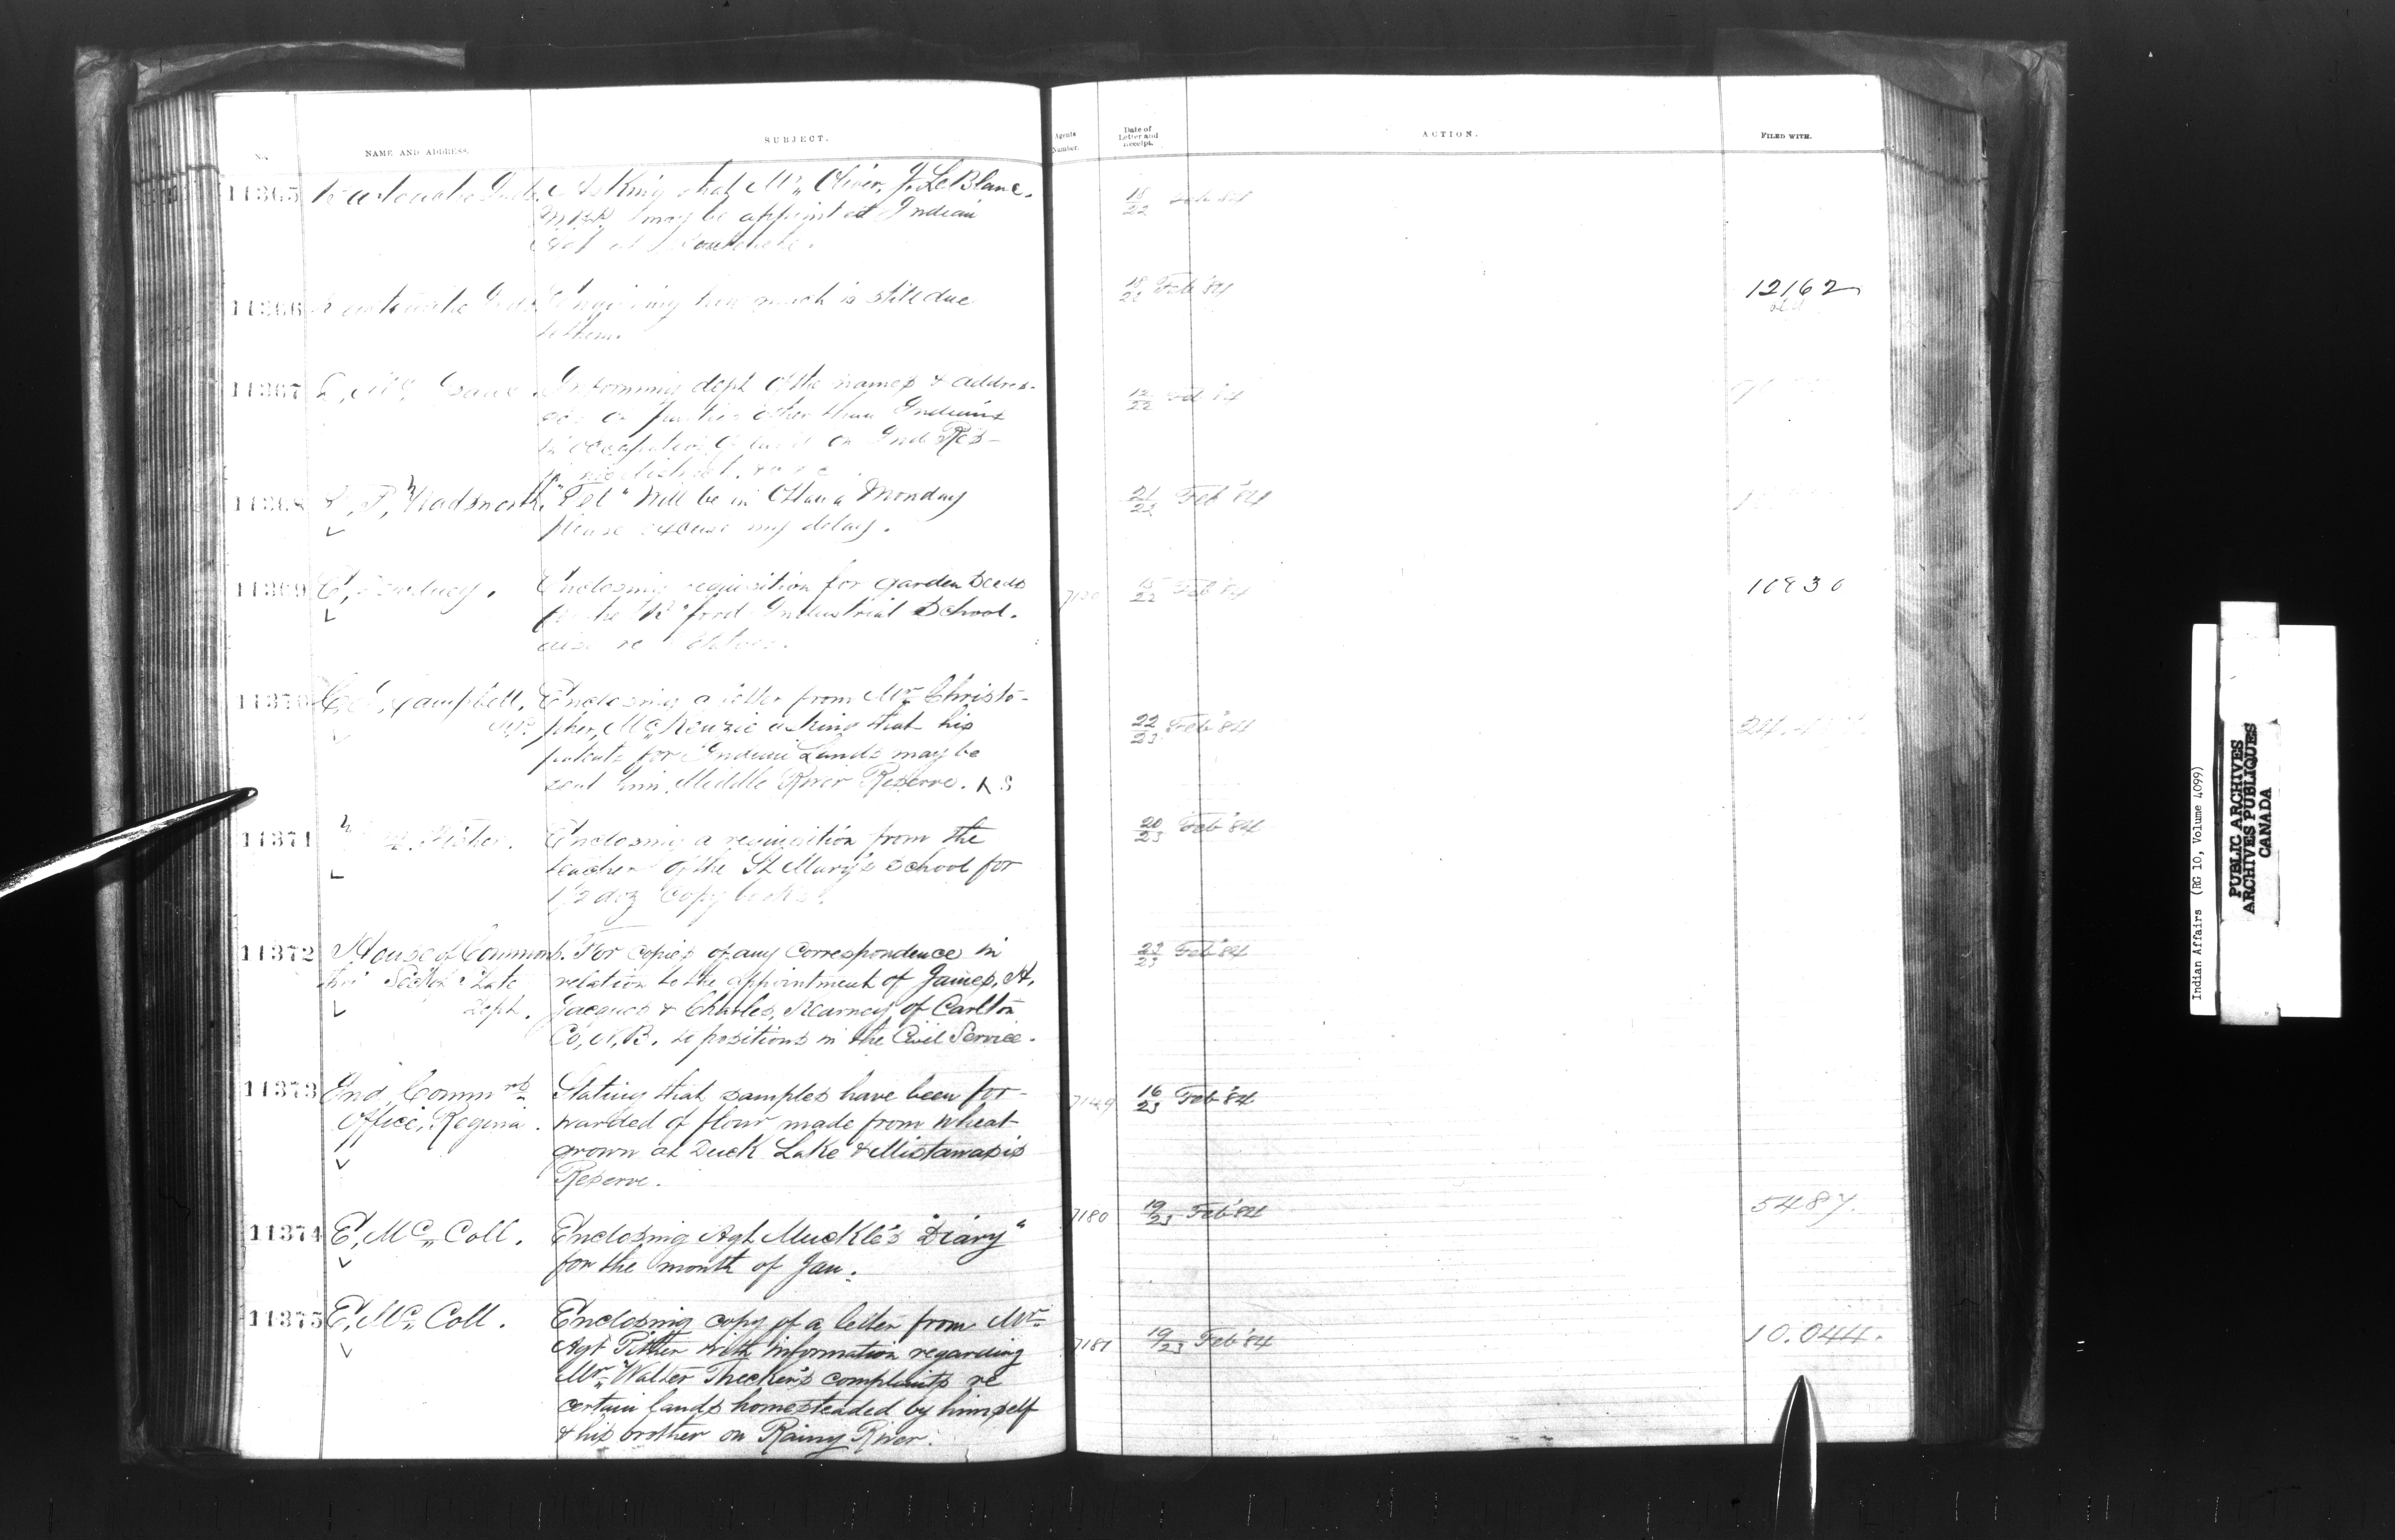 No.
NAME AND ADDRESS.
SUBJECT.
Agents Number.
Date of Letter and Receipt.
ACTION.
FILED WITH.
11365 Asking that Mr. Oliver, J. LeBlanc.
M.P.P. may be appointed Indian
18/22 Feb 84
11366 Enquiring how much is still due
to them.
18/22 Feb '84
12162
11367 Informing dept of the names & addres-
ses of parties other than Indians
in occupation of land on Ind. Res-
12/22 Feb 84
11368 Wadsworth. "Tel" Will be in Ottawa Monday
please excuse my delay.
21/22 Feb '84
11369 E. Dewdney. Enclosing requisition for garden seeds
for the B'ford Industrial School.
15/22 Feb '84
10830
11370 Campbell, Enclosing a letter from Mr. Christo-
pher, McKenzie asking that his
patents for Indian Lands may be
sent him. Middle River Reserve. N S
22/23 Feb '84
11371 Fisher. Enclosing a requisition from the
teacher of the St Mary's School for
1/2 doz Copy books.
20/23 Feb '84
11372 House of Commons. For copies of any correspondence in
State relation to the appointment of James, A,
Dept. Jacques & Charles, Kearney of Carlton
Co, N, B. to positions in the Civil Service.
22/23 Feb '84
11373 Ind. Commrs Stating that samples have been for-
Office, Regina. warded of flour made from wheat
grown at Duck Lake & Mistawasis
Reserve.
7149 16/23 Feb '84
11374 E. McColl. Enclosing Agt Muckle's "Diary"
for the month of Jan.
7180 19/23 Feb '84
5487.
11375 E. McColl. Enclosing copy of a letter from Mr.
Agt Pither with information regarding
Mr. Walter complaints re
certain lands homesteaded by himself
& his brother on Rainy River.
7181 19/23 Feb '84
10.044.
Indian Affairs (RG 10, Volume 4099)
PUBLIC ARCHIVES
ARCHIVES PUBLIQUES
CANADA